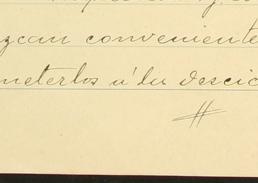 zcan conveniente
meterlos á la descic